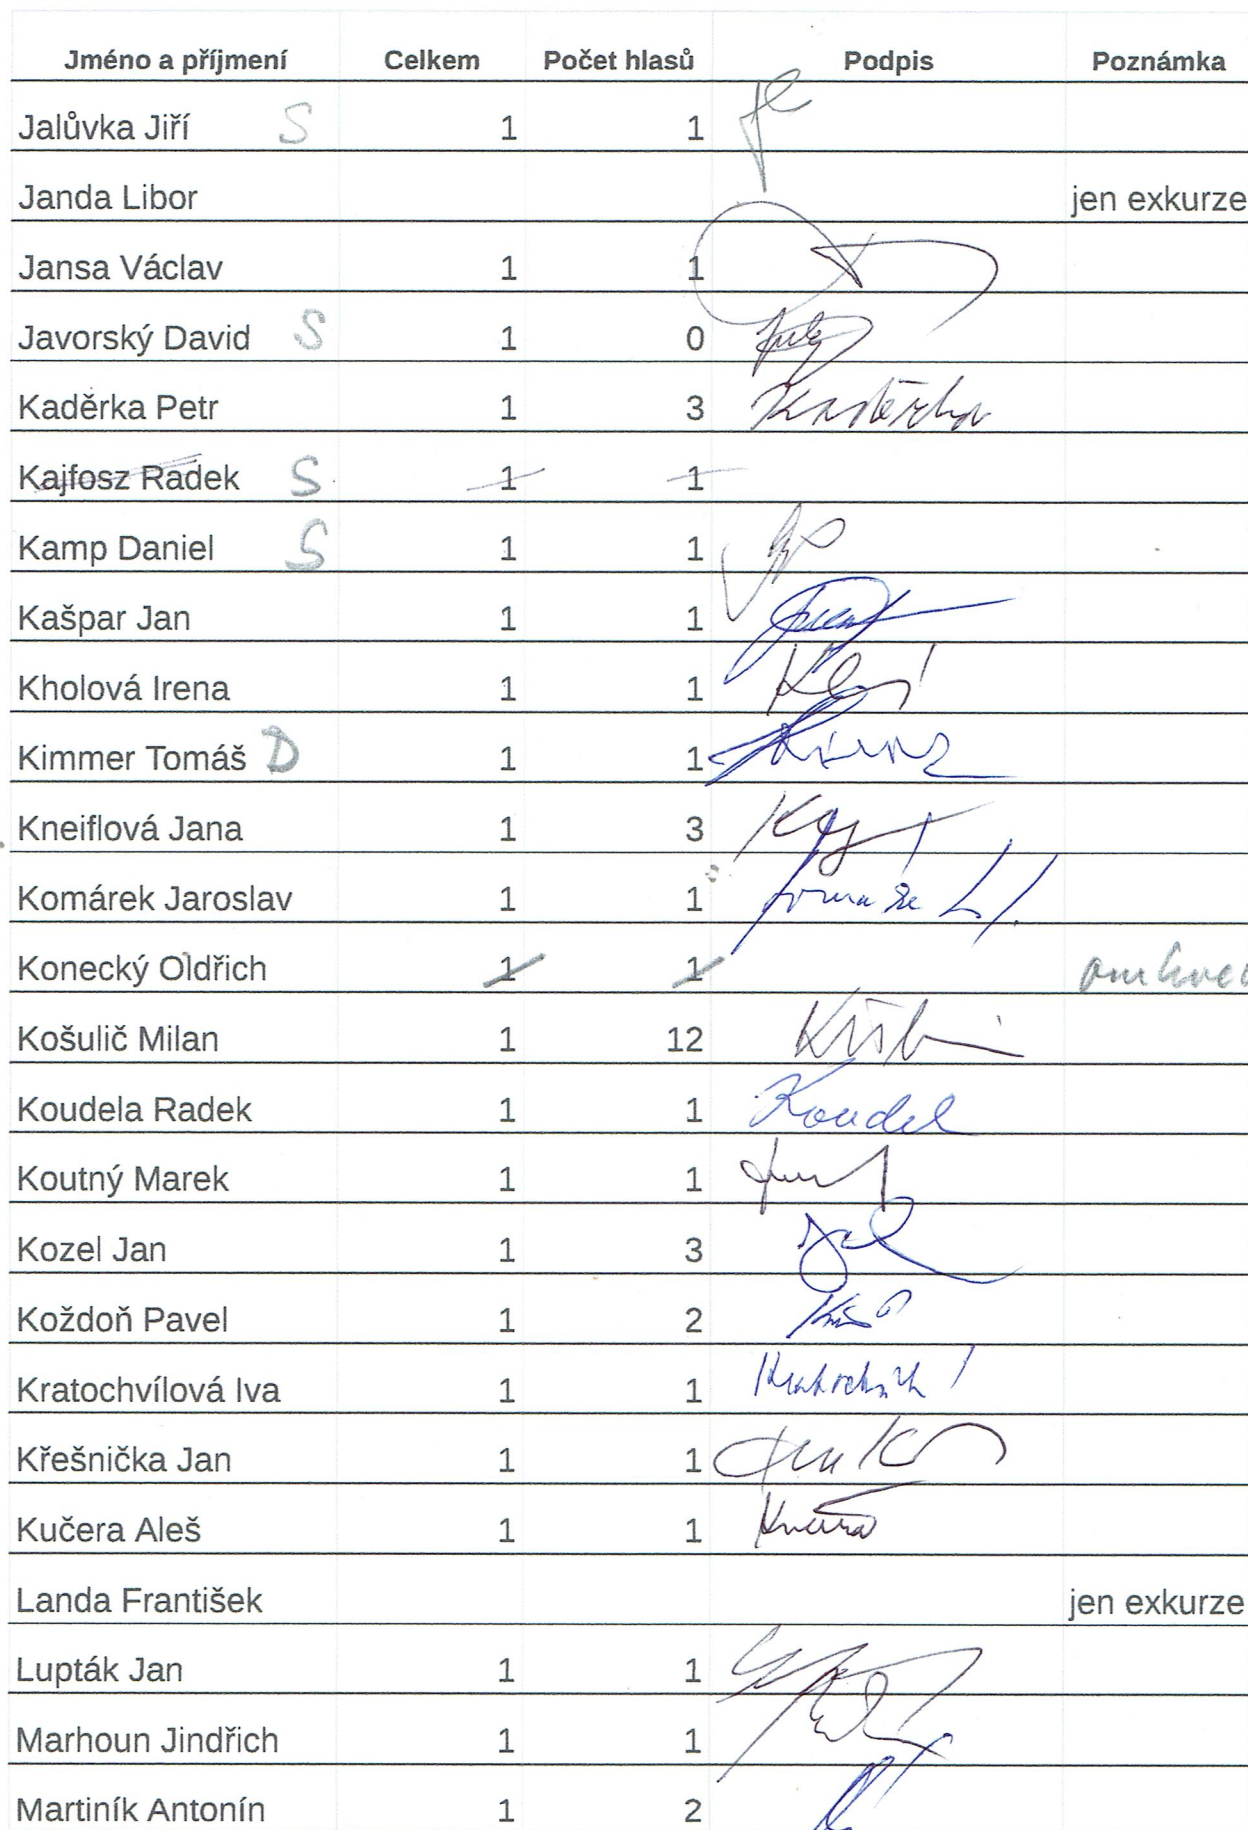 Jméno a příjmení Celkem Počet hlasů Podpis Poznámka
Jalůvka Jiří S 1 1
Janda Libor jen exkurze
Jansa Václav 1 1
Javorský David S 1 0
Kaděrka Petr 1 3 Kaděrka
Kajfosz Radek S 1 1
Kamp Daniel S 1 1
Kašpar Jan 1 1
Kholová Irena 1 1
Kimmer Tomáš D 1 1
Kneiflová Jana 1 3
Komárek Jaroslav 1 1
Konecký Oldřich 1 1
Košulič Milan 1 12
Koudela Radek 1 1 Koudel
Koutný Marek 1 1
Kozel Jan 1 3
Koždoň Pavel 1 2
Kratochvílová Iva 1 1
Křešnička Jan 1 1
Kučera Aleš 1 1
Landa František jen exkurze
Lupták Jan 1 1
Marhoun Jindřich 1 1
Martiník Antonín 1 2